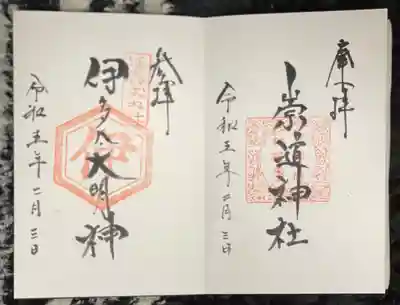 奉拝
崇道神社
令和五年二月三日
参拝
伊多太大明神
伊
令和五年二月三日